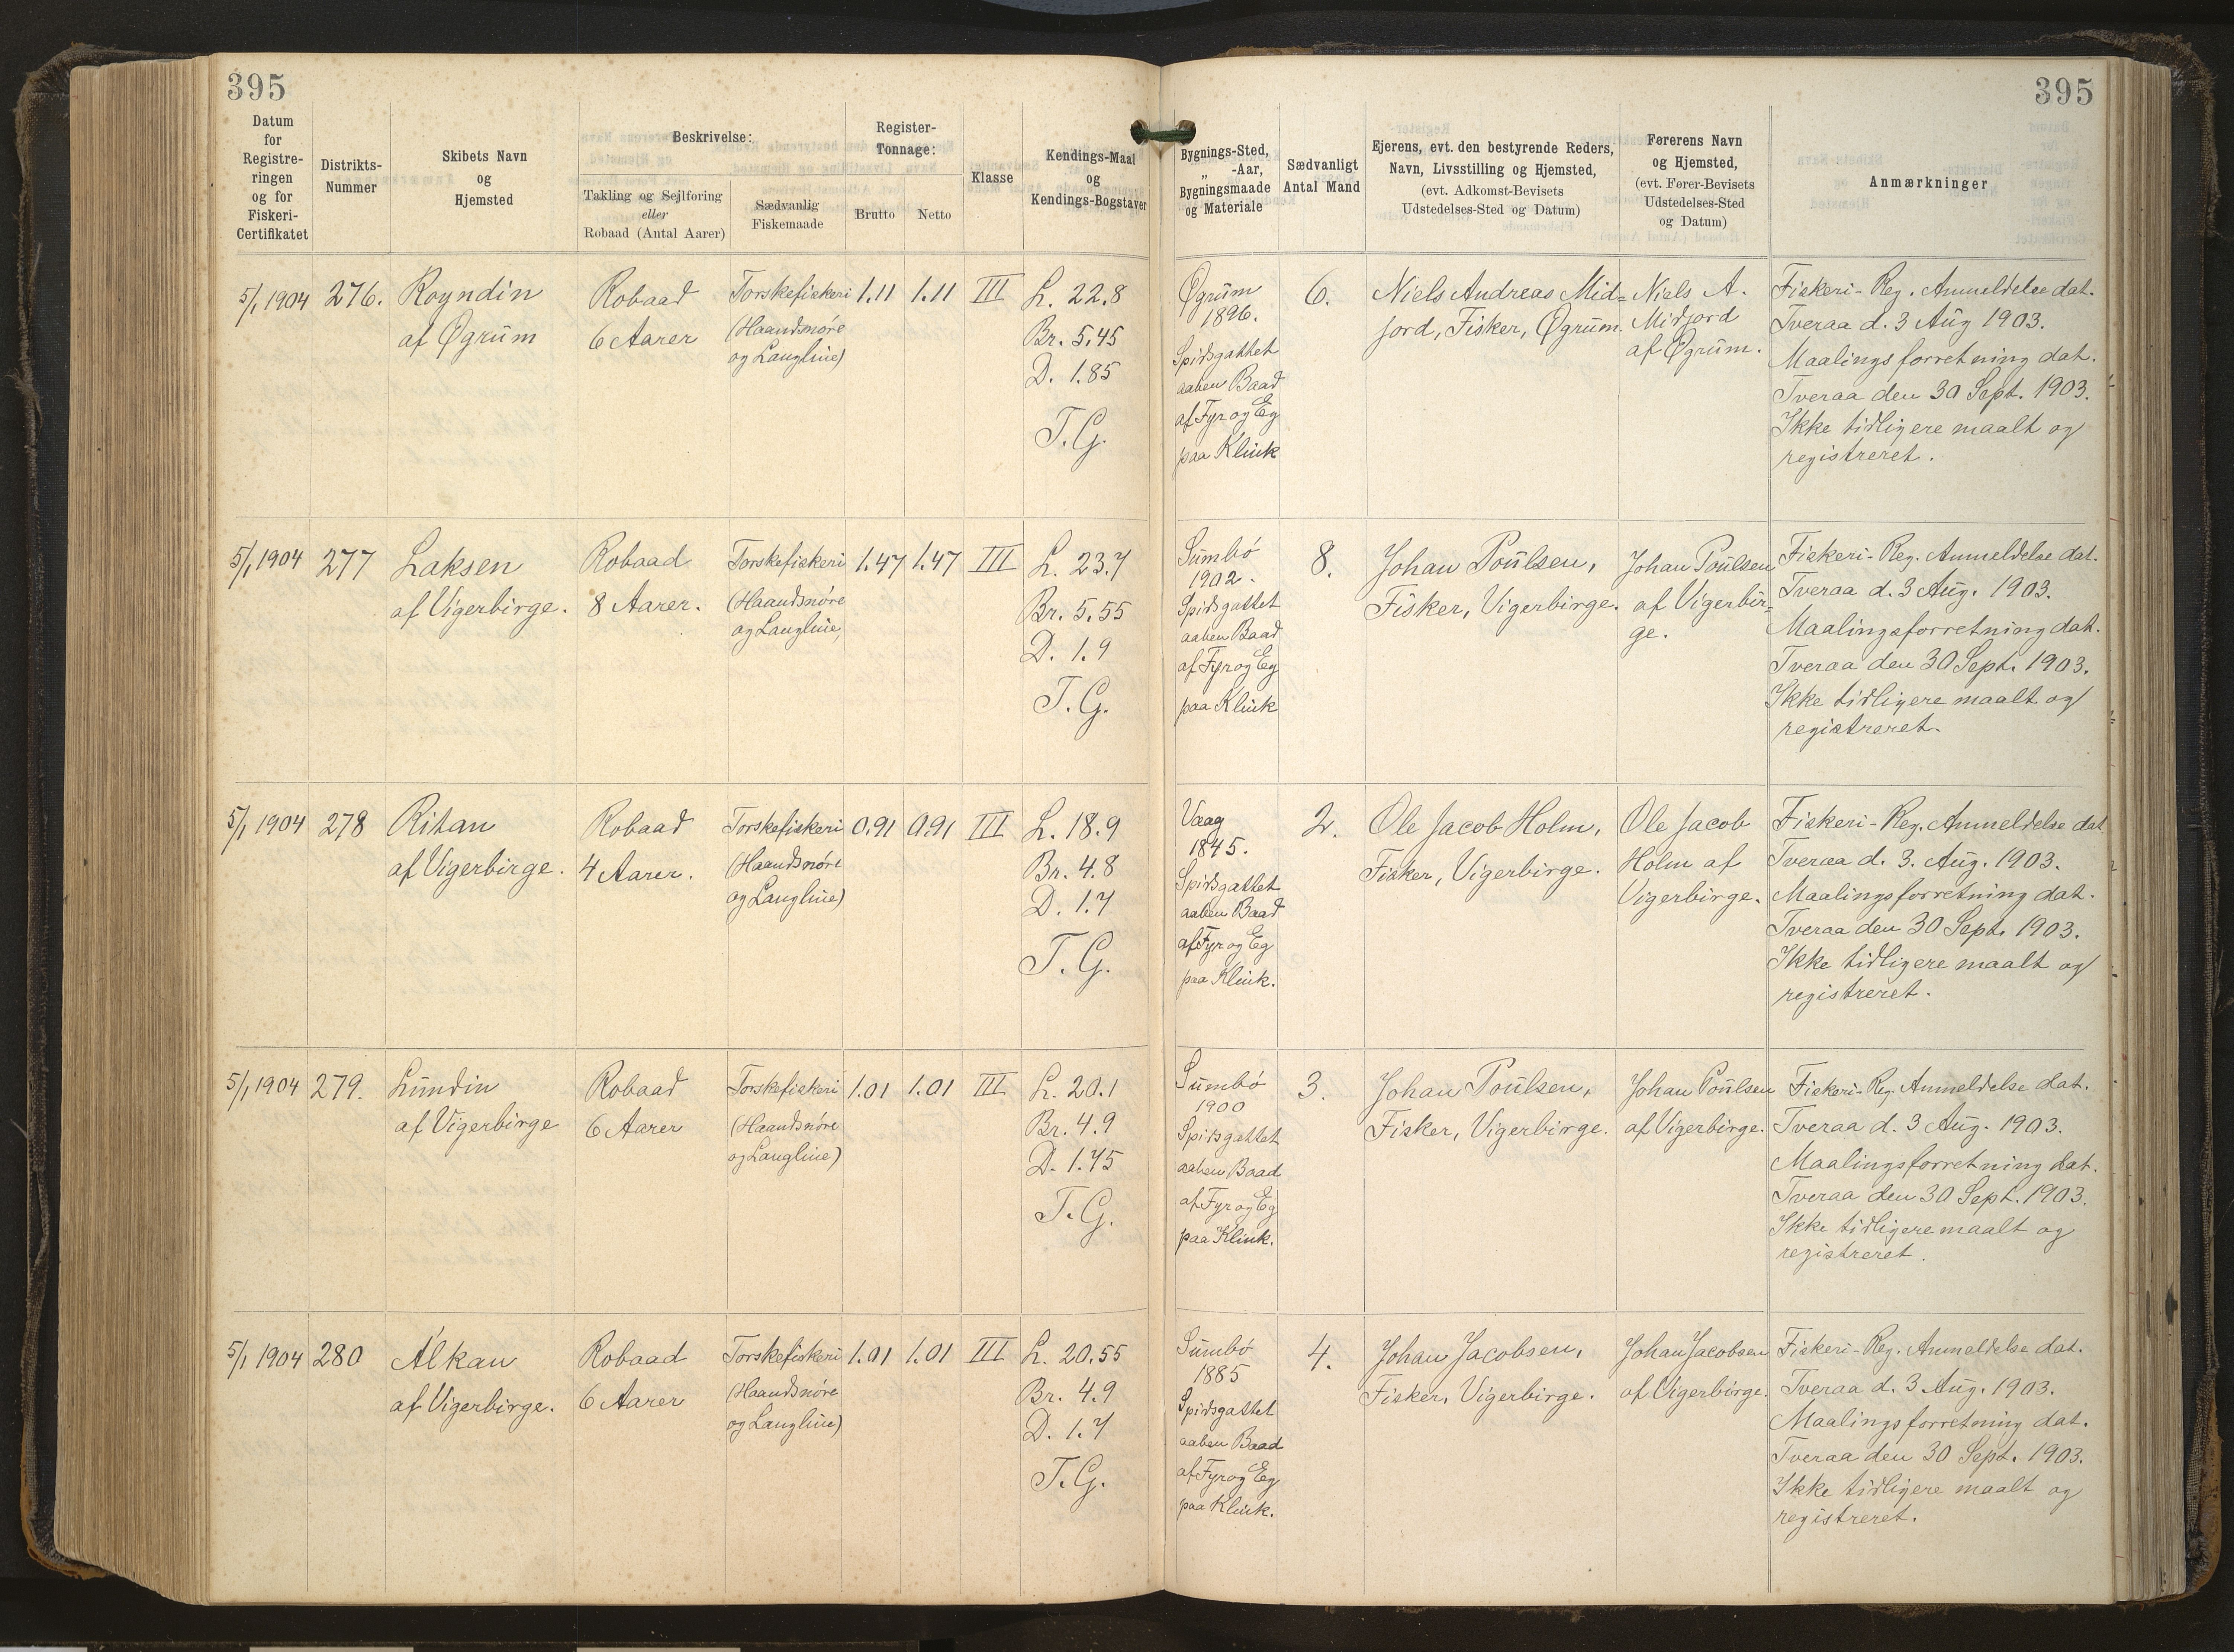 395
395
Datum
for
Registre-
ringen
og for
Fiskeri-
Certifikatet
Distrikts-
Nummer
Skibets Navn
og
Hjemsted
Beskrivelse:
Takling og Sejlføring
eller
Robaad (Antal Aarer)
Sædvanlig
Fiskemaade
Register-
Tonnage:
Brutto
Netto
Klasse
Kendings-Maal
og
Kendings-Bogstaver
Bygnings-Sted,
„ -Aar,
Bygningsmaade
og Materiale
Sædvanligt
Antal Mand
Ejerens, evt. den bestyrende Reders,
Navn, Livsstilling og Hjemsted,
(evt. Adkomst-Bevisets
Udstedelses-Sted og Datum)
Førerens Navn
og Hjemsted,
(evt. Fører-Bevisets
Udstedelses-Sted
og Datum)
Anmærkninger
5/1 1904
276.
Royndin
af Øgrum
Robaad
6 Aarer
Torskefiskeri
(Haandsnøre
og Langline)
1.11
1.11
III
L. 22.8
Br. 5.45
D. 1.85
T.G.
Øgrum
1896.
Spidsgattet
aaben Baad
af Fyr og Eg
paa Klink
6.
Niels Andreas Mid=
jord, Fisker, Øgrum.
Niels A.
Midjord
af Øgrum.
Fiskeri-Reg. Anmeldelse dat.
Tveraa d. 3 Aug 1903.
Maalingsforretning dat.
Tveraa den 30 Sept. 1903.
Ikke tidligere maalt og
registreret.
5/1 1904
277
Laksen
af Vigerbirge.
Robaad
8 Aarer.
Torskefiskeri
(Haandsnøre
og Langline)
1.47
1.47
III
L. 23.7
Br. 5.55
D. 1.9
T.G.
Sumbø
1902.
Spidsgattet
aaben Baad
af Fyr og Eg
paa Klink
8.
Johan Poulsen,
Fisker, Vigerbirge.
Johan Poulsen
af Vigerbir=
ge.
Fiskeri-Reg. Anmeldelse dat.
Tveraa d. 3 Aug. 1903.
Maalingsforretning dat.
Tveraa den 30 Sept. 1903.
Ikke tidligere maalt og
registreret.
5/1 1904
278
Ritan
af Vigerbirge.
Robaad
4 Aarer.
Torskefiskeri
(Haandsnøre
og Langline)
0.91
0.91
III
L. 18.9
Br. 4.8
D. 1.7
T.G.
Vaag
1845.
Spidsgattet
aaben Baad
af Fyr og Eg
paa Klink.
2.
Ole Jacob Holm,
Fisker, Vigerbirge.
Ole Jacob
Holm af
Vigerbirge.
Fiskeri-Reg. Anmeldelse dat
Tveraa d. 3. Aug. 1903.
Maalingsforretning dat.
Tveraa den 30 Sept. 1903.
Ikke tidligere maalt og
registreret.
5/1 1904
279.
Lundin
af Vigerbirge
Robaad
6 Aarer
Torskefiskeri
(Haandsnøre
og Langline)
1.01
1.01
III
L. 20.1
Br. 4.9
D. 1.75
T.G.
Sumbø
1900
Spidsgattet
aaben Baad
af Fyr og Eg
paa Klink.
3.
Johan Poulsen,
Fisker, Vigerbirge.
Johan Poulsen
af Vigerbirge.
Fiskeri-Reg. Anmeldelse dat.
Tveraa d. 3 Aug. 1903.
Maalingsforretning dat.
Tveraa den 30 Sept. 1903.
Ikke tidligere maalt og
registreret.
5/1 1904
280
Álkan
af Vigerbirge.
Robaad
6 Aarer
Torskefiskeri
(Haandsnøre
og Langline)
1.01
1.01
III
L. 20.55
Br. 4.9
D. 1.7
T.G.
Sumbø
1885
Spidsgattet
aaben Baad
af Fyr og Eg
paa Klink.
4.
Johan Jacobsen,
Fisker, Vigerbirge.
Johan Jacobsen
af Vigerbirge.
Fiskeri-Reg. Anmeldelse dat.
Tveraa d. 3 Aug. 1903.
Maalingsforretning dat.
Tveraa den 30 Sept. 1903.
Ikke tidligere maalt og
registreret.